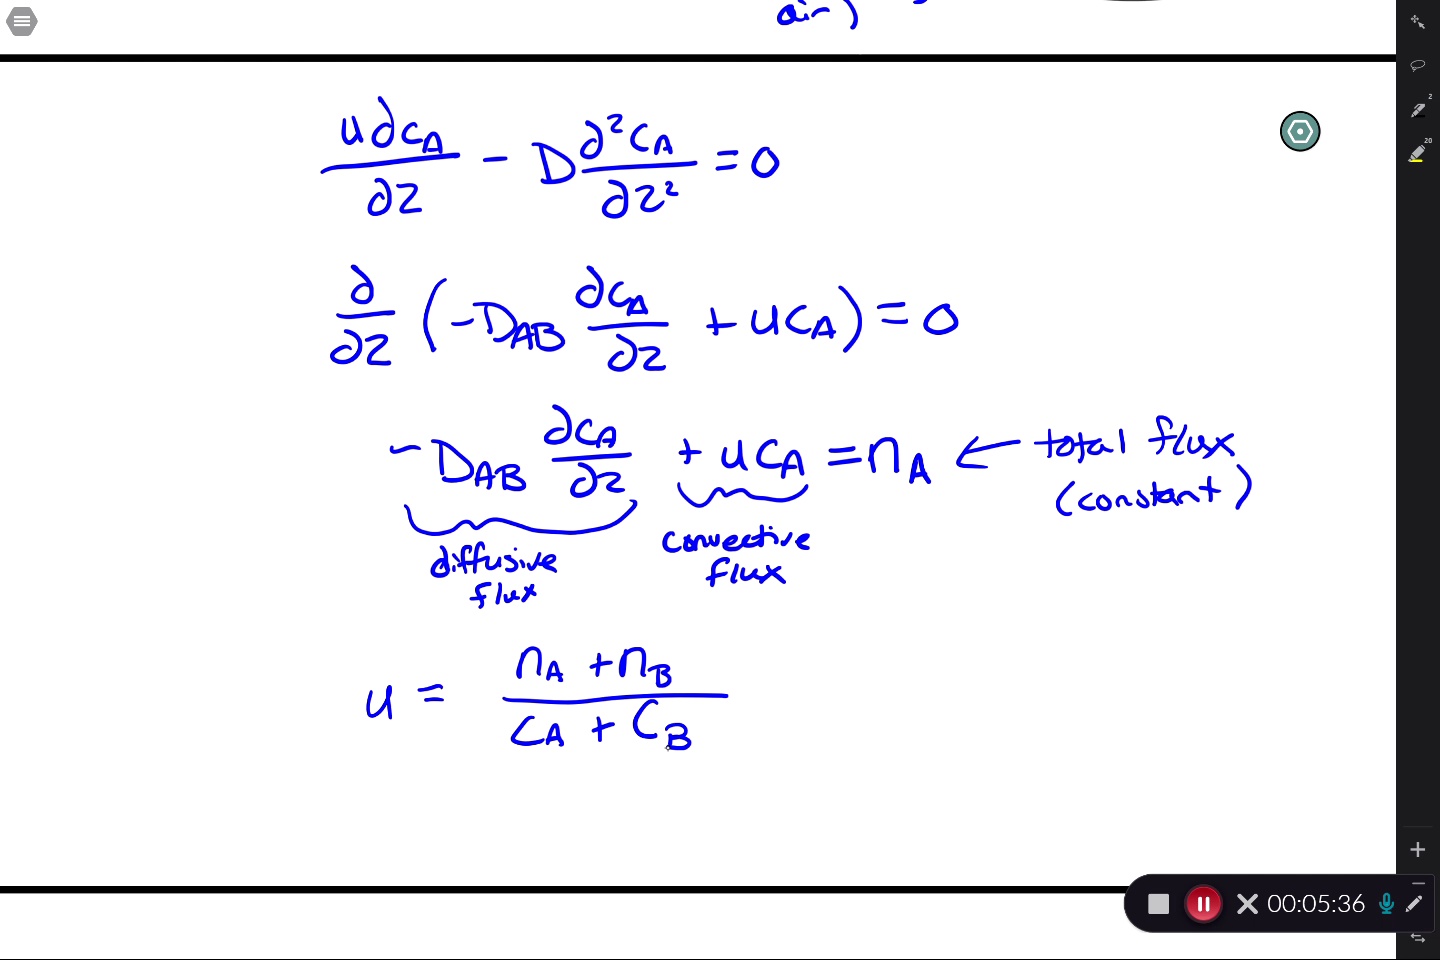 air)
u∂c_A/∂z - D ∂²c_A/∂z² = 0
∂/∂z (-D_AB ∂c_A/∂z + uc_A) = 0
-D_AB ∂c_A/∂z + uc_A = n_A ← total flux
(constant)
diffusive flux
convective flux
u = (n_A + n_B)/(c_A + c_B)
2
20
00:05:36